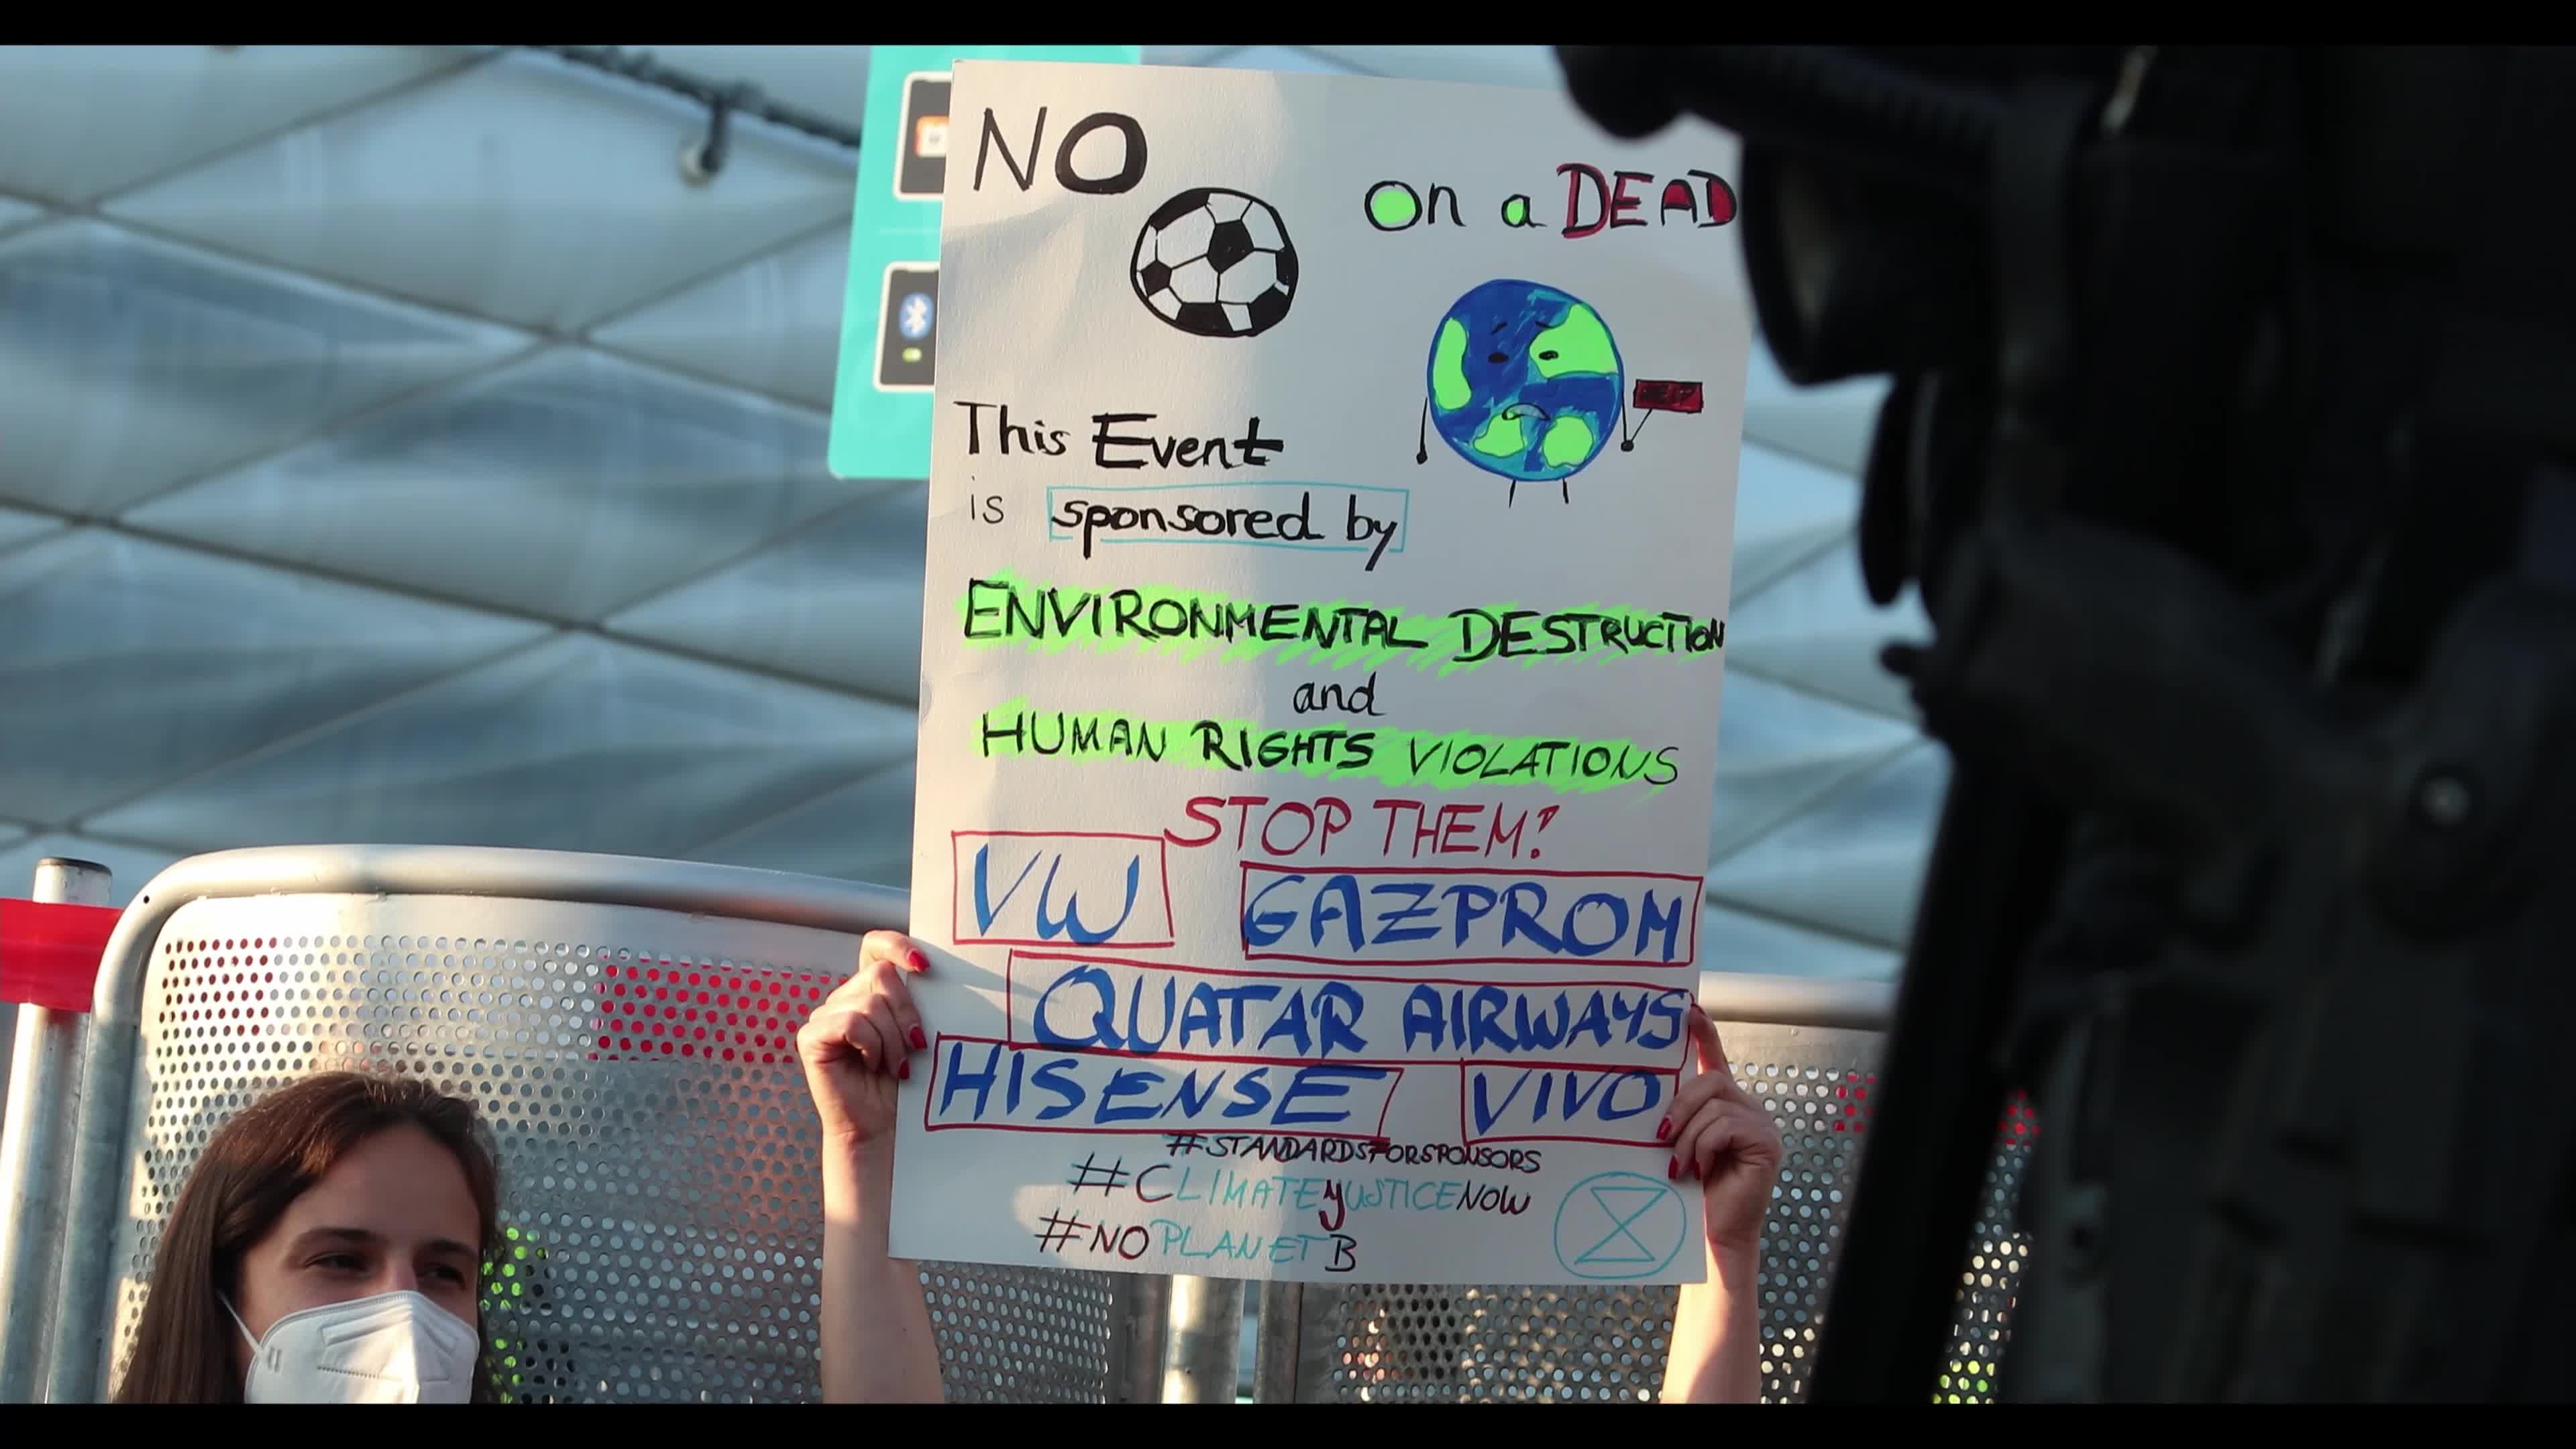 NO
on a DEAD
This Event
is sponsored by
ENVIRONMENTAL DESTRUCTION
and
HUMAN RIGHTS VIOLATIONS
STOP THEM!
VW GAZPROM
QUATAR AIRWAYS
HISENSE VIVO
#STANDARDSFORSPONSORS
#CLIMATEJUSTICENOW
#NOPLANETB